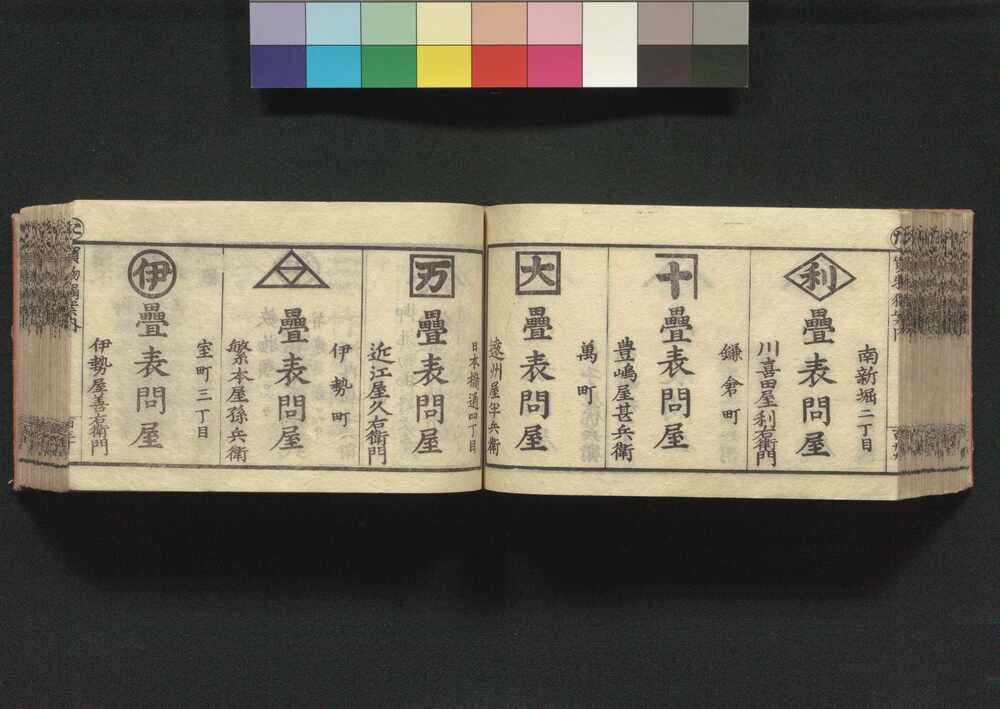 南新堀二丁目
利
疊表問屋
川喜田屋利右衛門
鎌倉町
十
疊表問屋
豊嶋屋甚兵衛
萬町
大
疊表問屋
遠州屋半兵衛
日本橋通四丁目
万
疊表問屋
近江屋久右衛門
伊勢町
二
疊表問屋
繁本屋孫兵衛
室町三丁目
伊
疊表問屋
伊勢屋善右衛門
買物獨案内